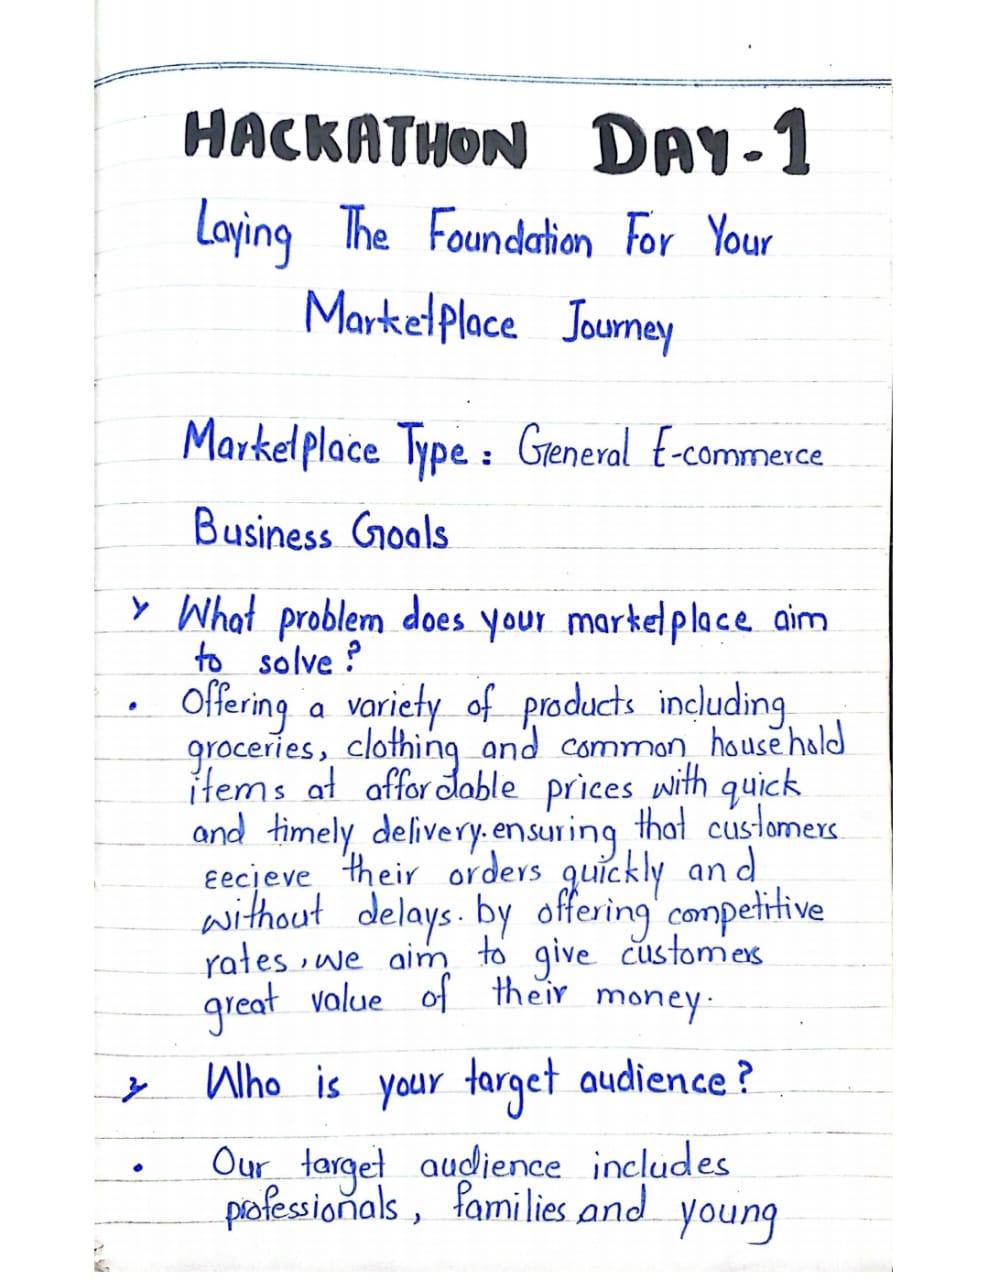 HACKATHON DAY-1
Laying The Foundation For Your
Marketplace Journey
Marketplace Type : General E-commerce
Business Goals
What problem does your marketplace aim
to solve?
• Offering a variety of products including
groceries, clothing and common household
items at affordable prices with quick
and timely delivery.ensuring that customers
eecieve their orders quickly and
without delays. by offering competitive
rates, we aim to give customers
great value of their money.
Who is your target audience?
• Our target audience includes
professionals, families and young